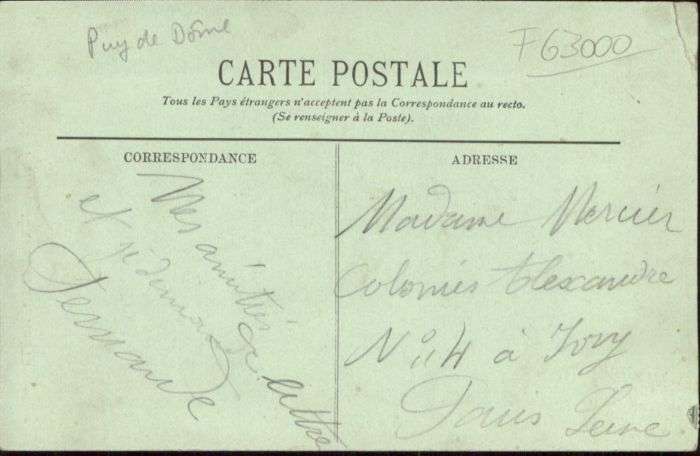 Puy de Dôme
F63000
CARTE POSTALE
Tous les Pays étrangers n'acceptent pas la Correspondance au recto.
(Se renseigner à la Poste).
CORRESPONDANCE
Mes amitiés
et je demande
lettre
Fernande
ADRESSE
Madame Mercier
Colonies Alexandre
N° 14 à Ivry
Paris Seine